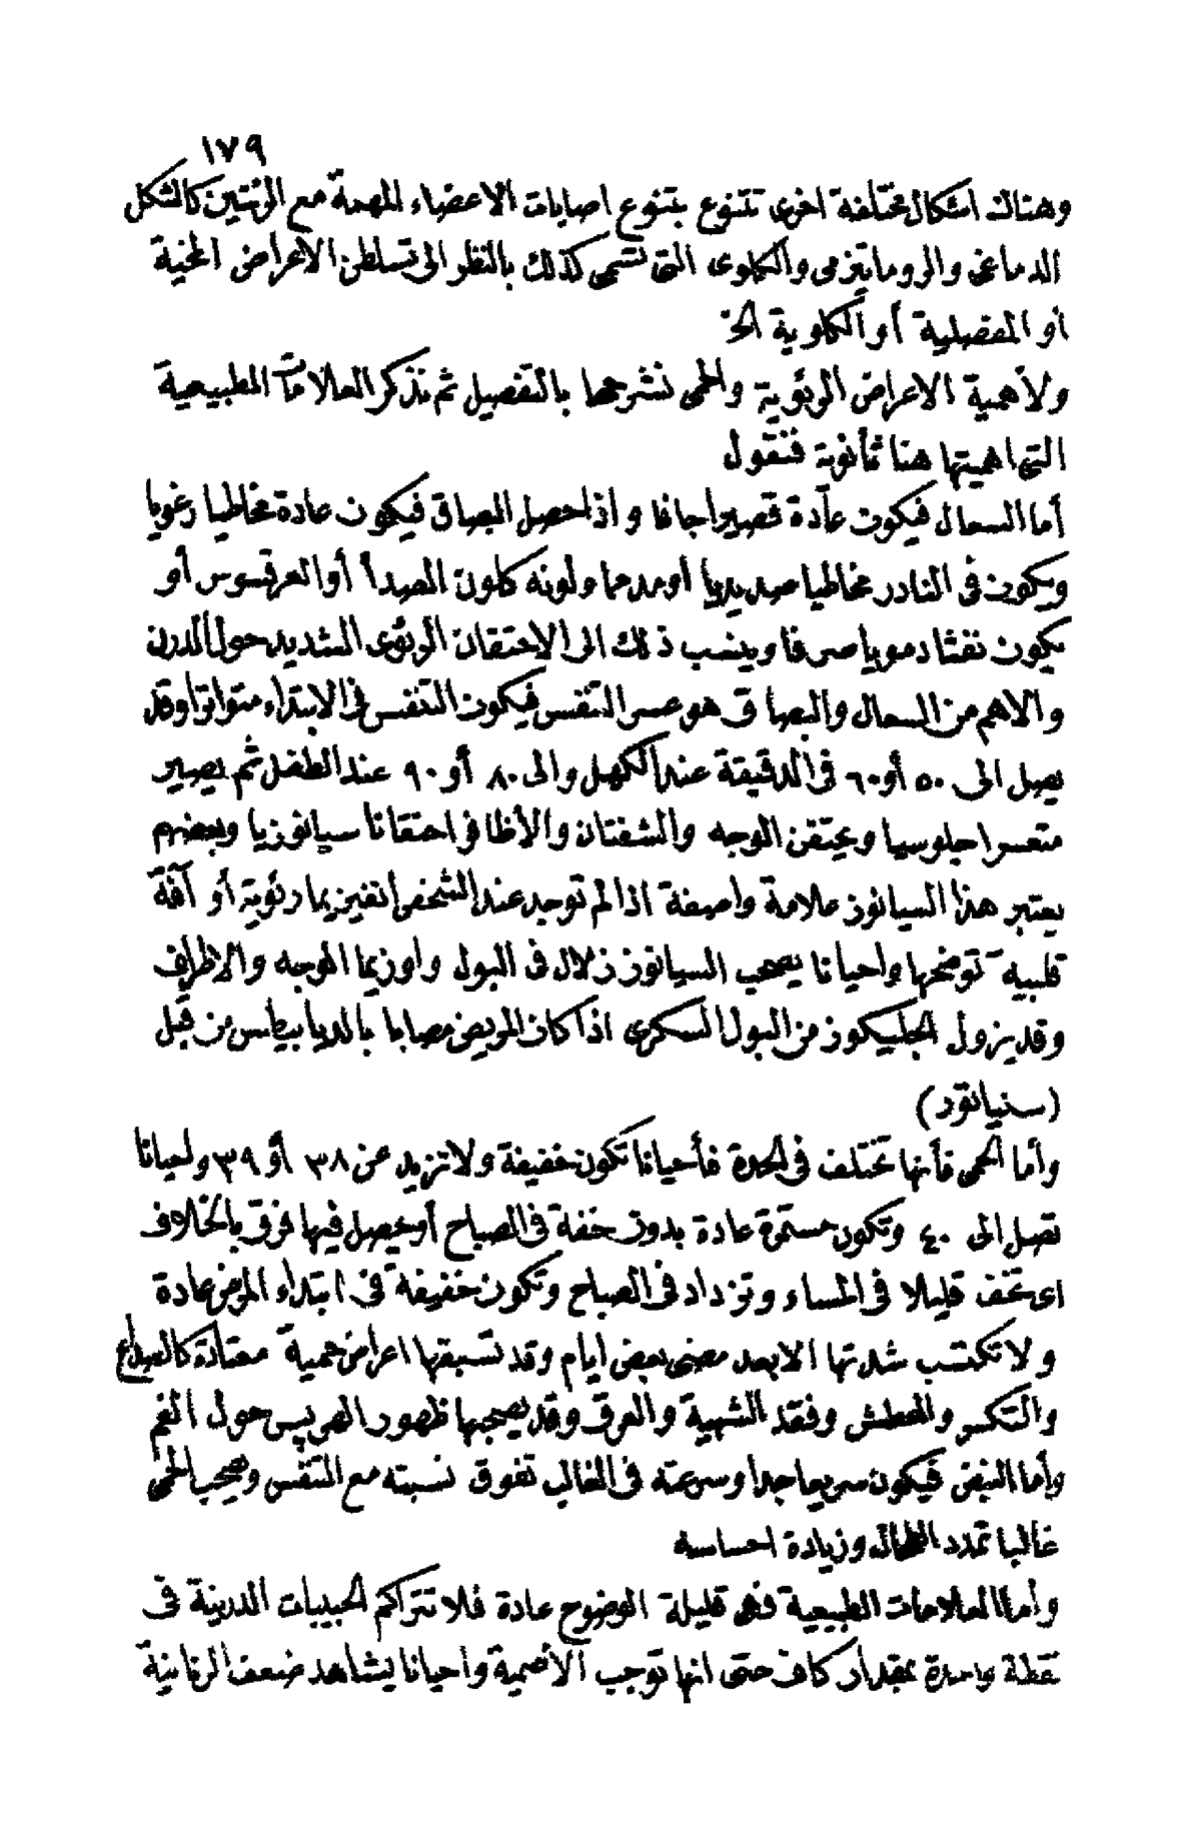 ١٧٩
وهناك اشكال مختلفة اخرى تتنوع بتنوع اصابات الاعضاء المهمة مع الرئتين كالشكل
الدماغى والروماتيزمى والكلوى التى تسمى كذلك بالنظر الى تسلطن الاعراض المخية
أو المفصلية أو الكلوية الخ
ولأهمية الاعراض الرئوية والحمى نشرحهما بالتفصيل ثم نذكر العلامات الطبيعية
التى اهميتها هنا ثانوية فنقول
أما السعال فيكون عادة قصيرا جافا واذا حصل البصاق فيكون عادة مخاطيا رغويا
ويكون فى النادر مخاطيا صديديا أو مدمما ولونه كلون الصدأ أو العرقسوس أو
يكون نفثا دمويا صرفا وينسب ذلك الى الاحتقان الرئوى الشديد حول الدرن
والاهم من السعال والبصاق هو عسر التنفس فيكون التنفس فى الابتداء متواترا وقد
يصل الى ٥٠ أو ٦٠ فى الدقيقة عند الكهل والى ٨٠ أو ٩٠ عند الطفل ثم يصير
متعسرا جلوسيا ويحتقن الوجه والشفتان والأظافر احتقانا سيانوزيا وبعضهم
يعتبر هذا السيانوز علامة واصفة اذا لم توجد عند الشخص انفيزيما رئوية أو آفة
قلبية توضحها واحيانا يصحب السيانوز زلال فى البول واوزيما الوجه والاطراف
وقد يزول الجليكوز من البول السكرى اذا كان المريض مصابا بالديابيطس من قبل
(سنيانود)
وأما الحمى فأنها تختلف فى الحدة فأحيانا تكون خفيفة ولا تزيد عن ٣٨ أو ٣٩ واحيانا
تصل الى ٤٠ وتكون مستمرة عادة بدون خفة فى الصباح أو يحصل فيها فرق بالخلاف
اى تخف قليلا فى المساء وتزداد فى الصباح وتكون خفيفة فى ابتداء المرض عادة
ولا تكتسب شدتها الا بعد مضى بعض ايام وقد تسبقها اعراض حمية معتادة كالصداع
والتكسر والعطش وفقد الشهية والعرق وقد يصحبها ظهور الهربيس حول الفم
وأما النبض فيكون سريعا جدا وسرعته فى الغالب تفوق نسبته مع التنفس ويصحب الحمى
غالبا تمدد الطحال وزيادة احساسه
وأما العلامات الطبيعية فهى قليلة الوضوح عادة فلا تتراكم الحبيبات الدرنية فى
نقطة واحدة بمقدار كاف حتى انها توجب الأصمية واحيانا يشاهد ضعف الرنانية